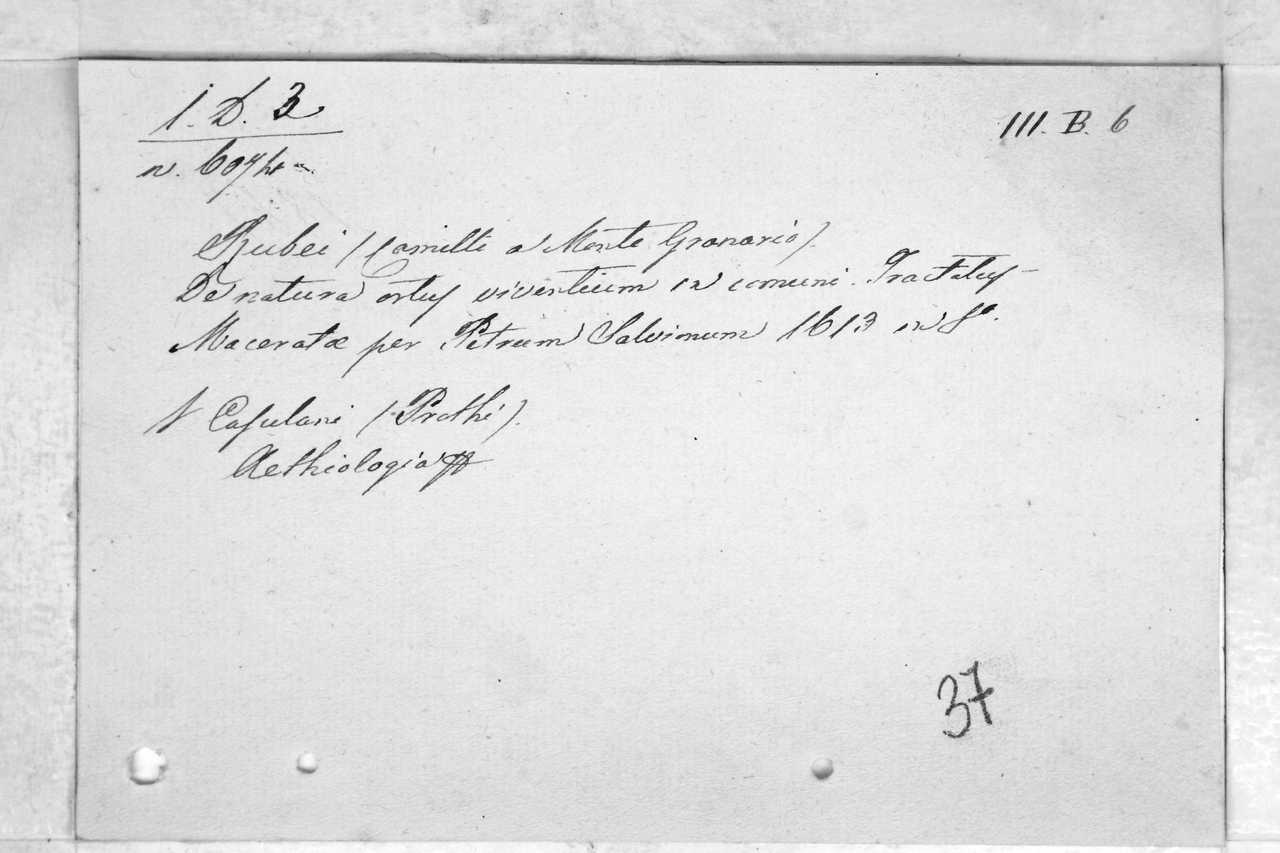 1. D. 3
III. B. 6
n.
Rubei (Camilli a Monte Granario).
De natura ortus viventium in comuni. Tractatus -
Maceratæ per Petrum Salvionum 1613 in 8°.
Casulani (Prothi).
Aethiologia
37